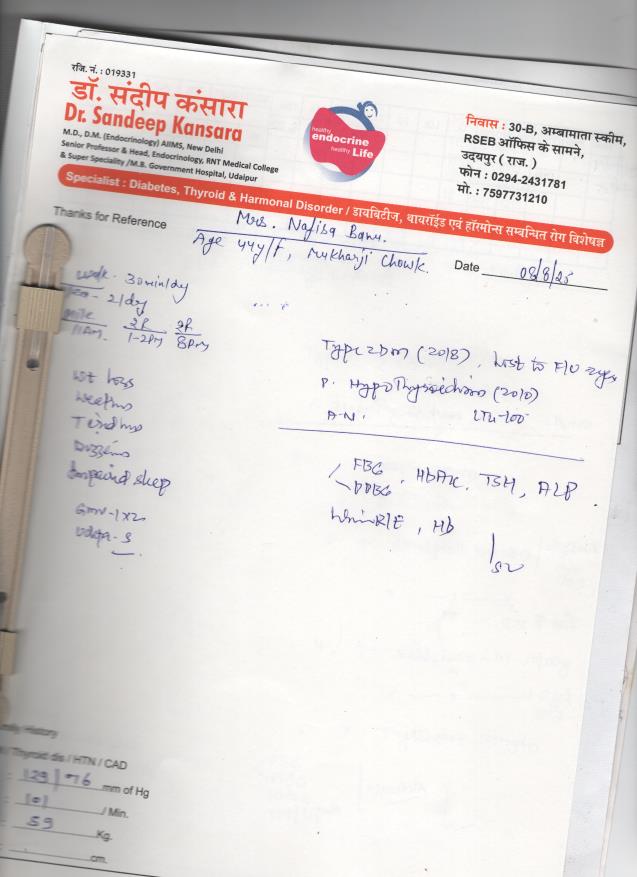 रजि. नं. : 019331
डॉ. संदीप कंसारा
Dr. Sandeep Kansara
M.D., D.M. (Endocrinology) AIIMS, New Delhi
Senior Professor & Head, Endocrinology, RNT Medical College
& Super Speciality /M.B. Government Hospital, Udaipur
healthy
endocrine
healthy Life
निवास : 30-B, अम्बामाता स्कीम,
RSEB ऑफिस के सामने,
उदयपुर ( राज. )
फोन : 0294-2431781
मो. : 7597731210
Specialist : Diabetes, Thyroid & Harmonal Disorder / डायबिटीज, थायरॉईड एवं हॉरमोन्स सम्बन्धित रोग विशेषज्ञ
Thanks for Reference
Mrs. Nafisa Banu.
Age 44y/F, Mukharji Chowk.
Date 08/8/25
walk - 30min/dy
- 2/dy
Milk
11Am. 1-2pm 8pm
Type 2 DM (2018), Lost to F/U
P. Hypothyroidism (2010)
A.N. LTU-100
Wt loss
Tiredness
Dizziness
Impaired sleep
FBG
PPBG . HbA1c. TSH, ALP.
Urine R/E, Hb
Family History
Thyroid dis / HTN / CAD
: 129/76 mm of Hg
: 101 / Min.
: 59 Kg.
: cm.